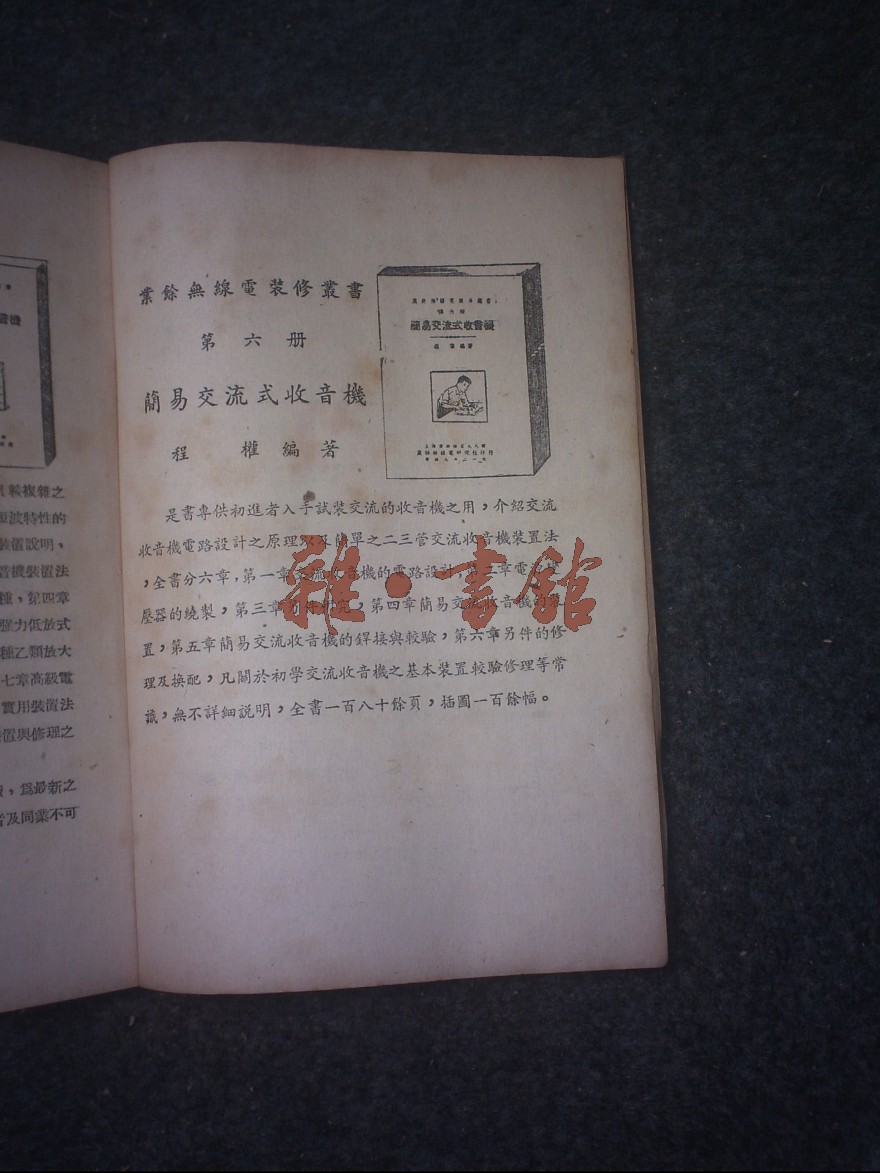 業餘無線電裝修叢書
第六册
簡易交流式收音機
程 權編著
是書專供初進者入手試裝交流的收音機之用，介紹交流
收音機電路設計之原理以及簡單之二三管交流收音機裝置法
，全書分六章，第一章交流收音機的電路設計，第二章電源變
壓器的繞製，第三章另件研究，第四章簡易交流收音機的裝
置，第五章簡易交流收音機的銲接與較驗，第六章另件的修
理及換配，凡關於初學交流收音機之基本裝置較驗修理等常
識，無不詳細説明，全書一百八十餘頁，插圖一百餘幅。
簡易交流式收音機
雜·書館
較複雜之
短波特性的
裝置說明，
音機裝置法
種，第四章
強力低放式
種乙類放大
七章高級電
實用裝置法
置與修理之
，爲最新之
者及同業不可